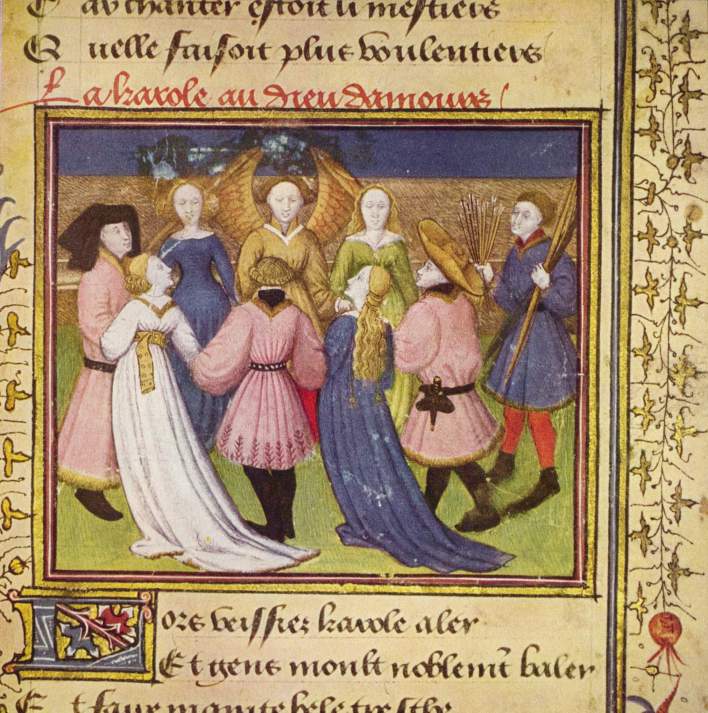 Et au chanter estoit li mestiers
Quelle faisoit plus voulentiers
La karole au dieu damours
Lors veissiez karole aler
Et gens moult noblemt baler
Et faire mainte bele tresche